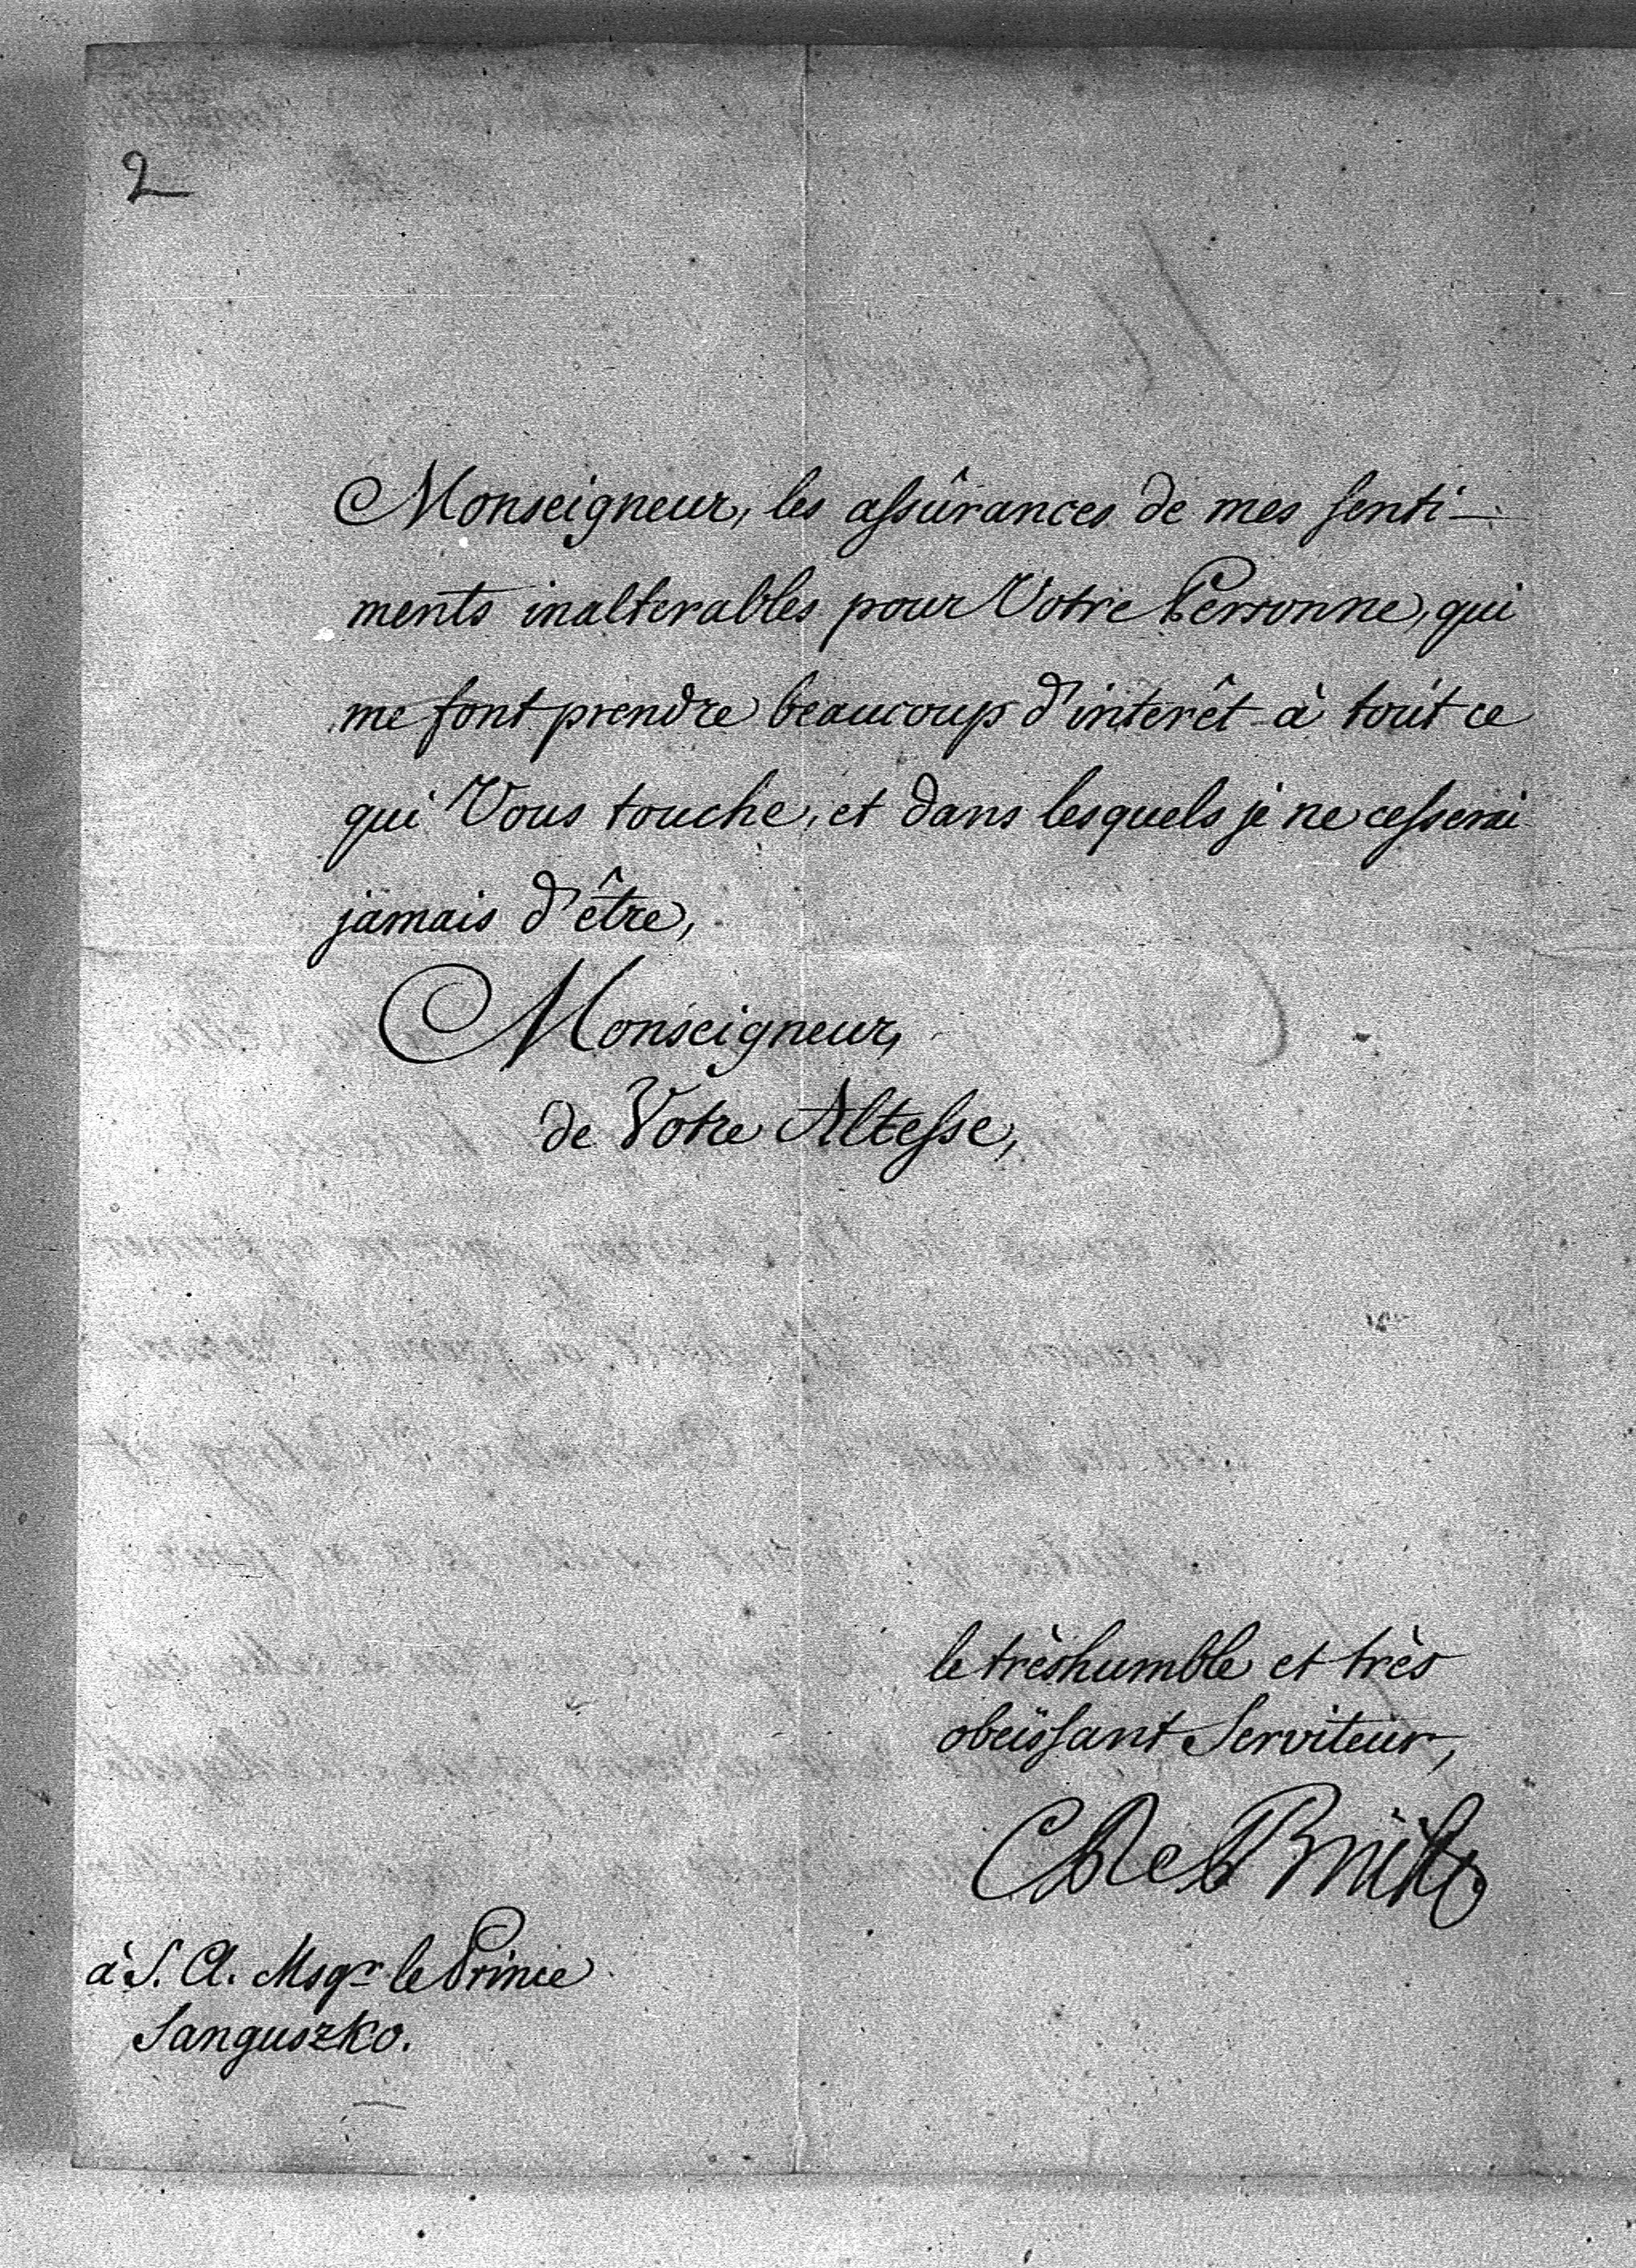 2
Monseigneur, les assûrances de mes senti-
ments inalterables pour Votre Personne, qui
me font prendre beaucoup d'interêt à tout ce
qui Vous touche, et dans lesquels je ne cesserai
jamais d'être,
Monseigneur,
de Votre Altesse,
le trèshumble et très
obeïssant Serviteur,
CDe Brühl
à S. A. Msgr le Prince
Sanguszko.